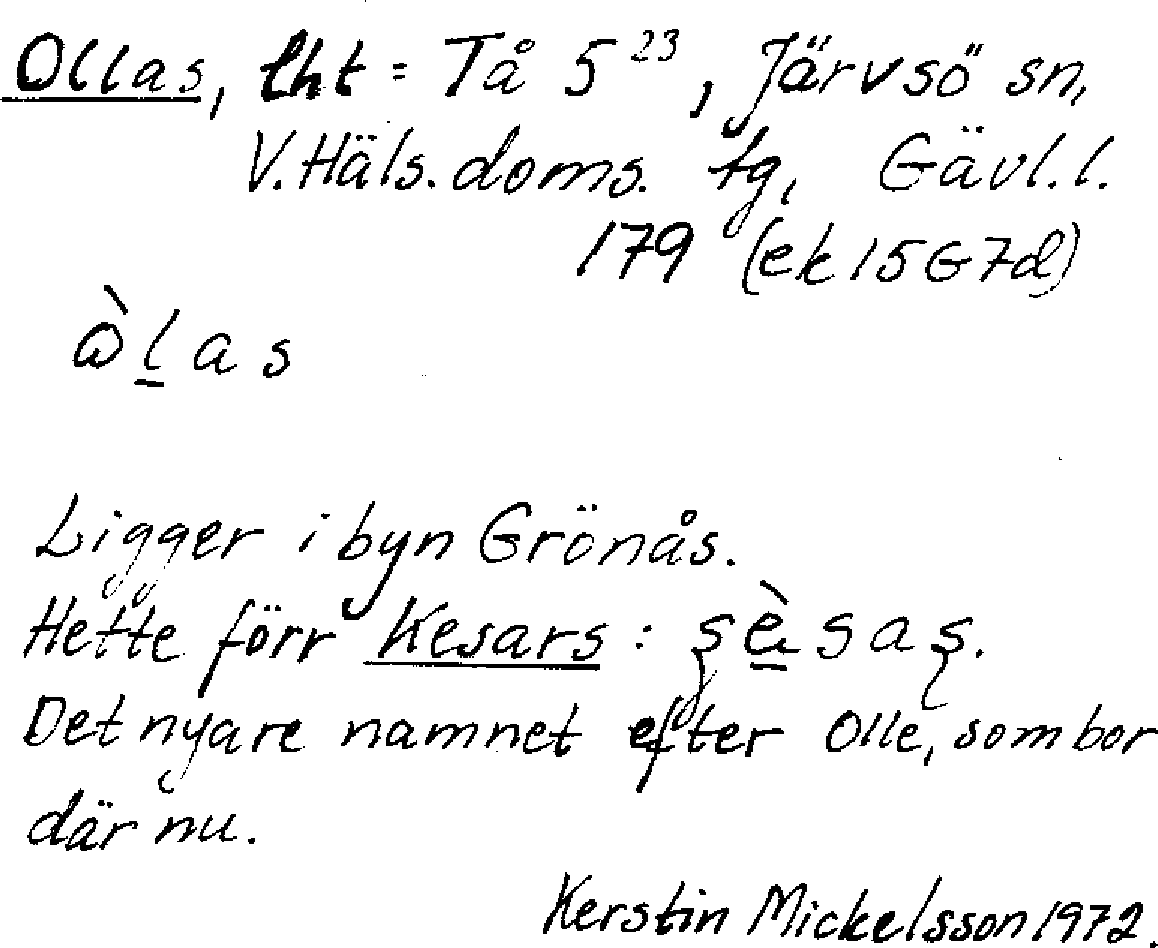 Ollas, lht = Tå 5²³, Järvsö sn,
V. Häls. doms. tg, Gävl. l.
179 (ek 15G7d)
ɷ̀l̠as
Ligger i byn Grönås.
Hette förr Kesars : ʂè̠saʂ.
Det nyare namnet efter Olle, som bor
där nu.
Kerstin Mickelsson 1972.